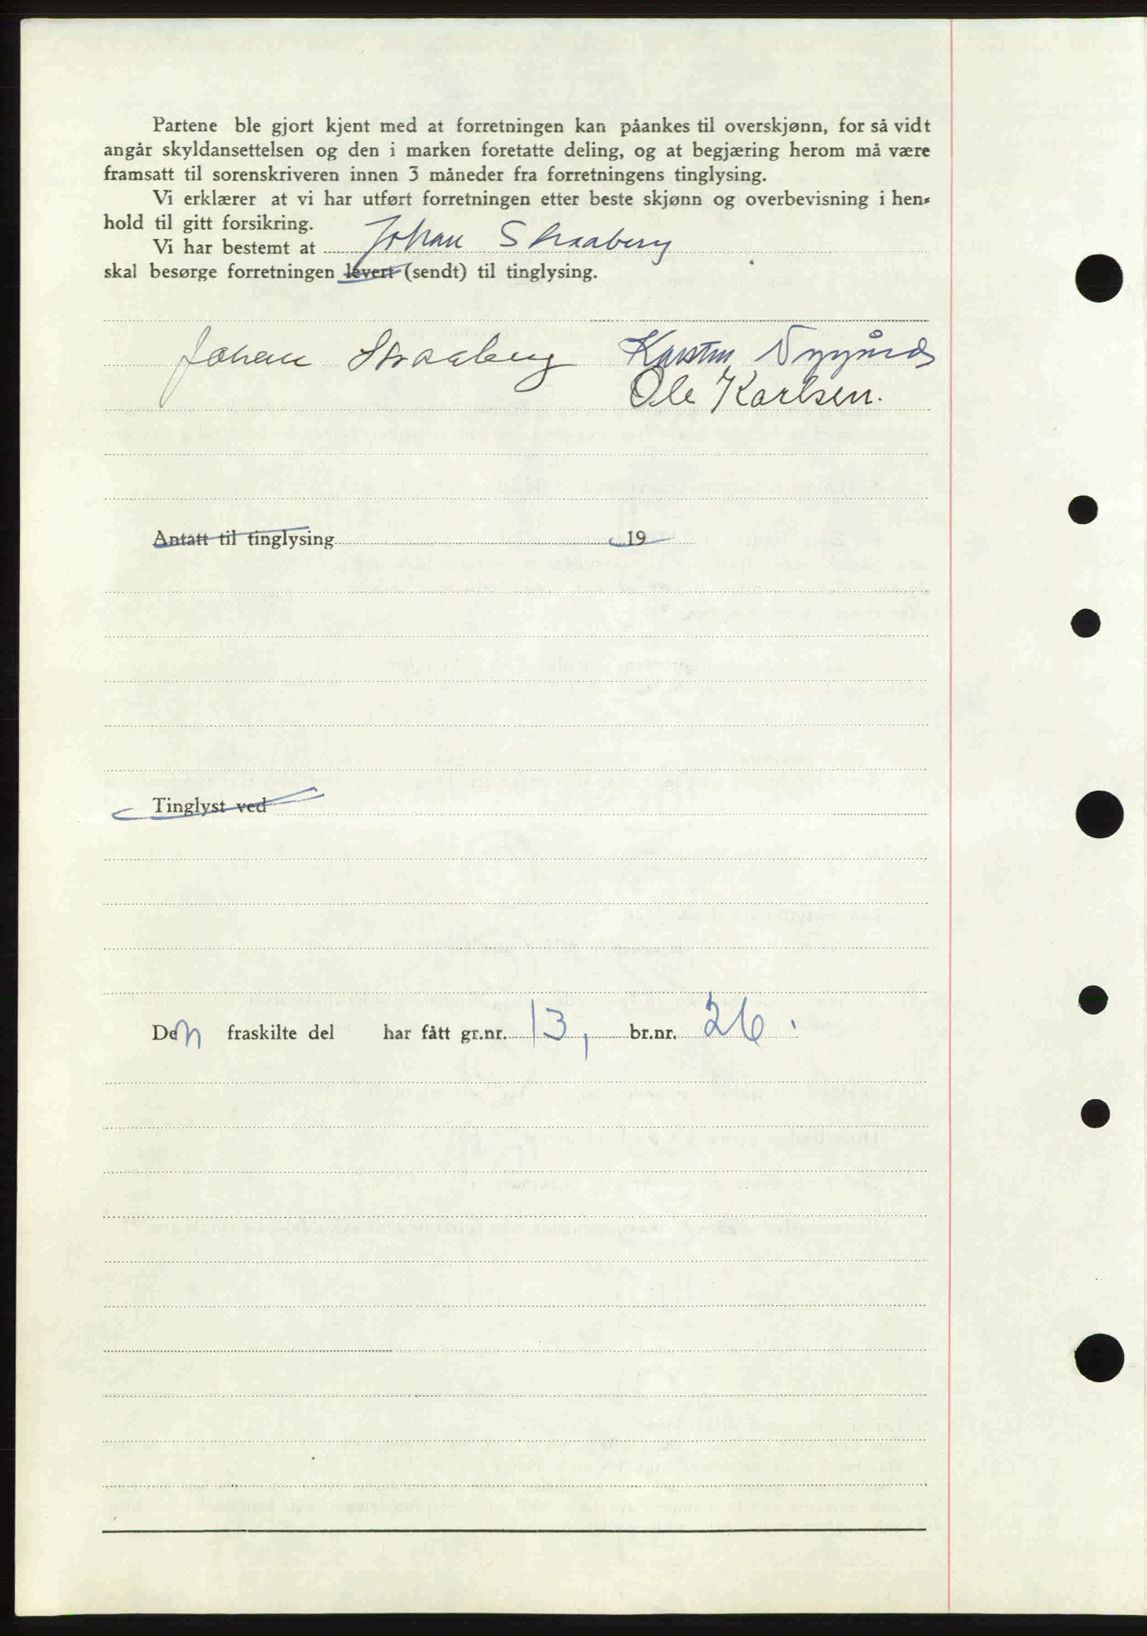 Partene ble gjort kjent med at forretningen kan påankes til overskjønn, for så vidt
angår skyldansettelsen og den i marken foretatte deling, og at begjæring herom må være
framsatt til sorenskriveren innen 3 måneder fra forretningens tinglysing.
Vi erklærer at vi har utført forretningen etter beste skjønn og overbevisning i hen-
hold til gitt forsikring.
Vi har bestemt at Johan Straaberg
skal besørge forretningen levert (sendt) til tinglysing.
Johan Straaberg Karsten Nygård
Ole Karlsen.
Antatt til tinglysing 19
Tinglyst ved
Den fraskilte del har fått gr.nr. 13, br.nr. 26.